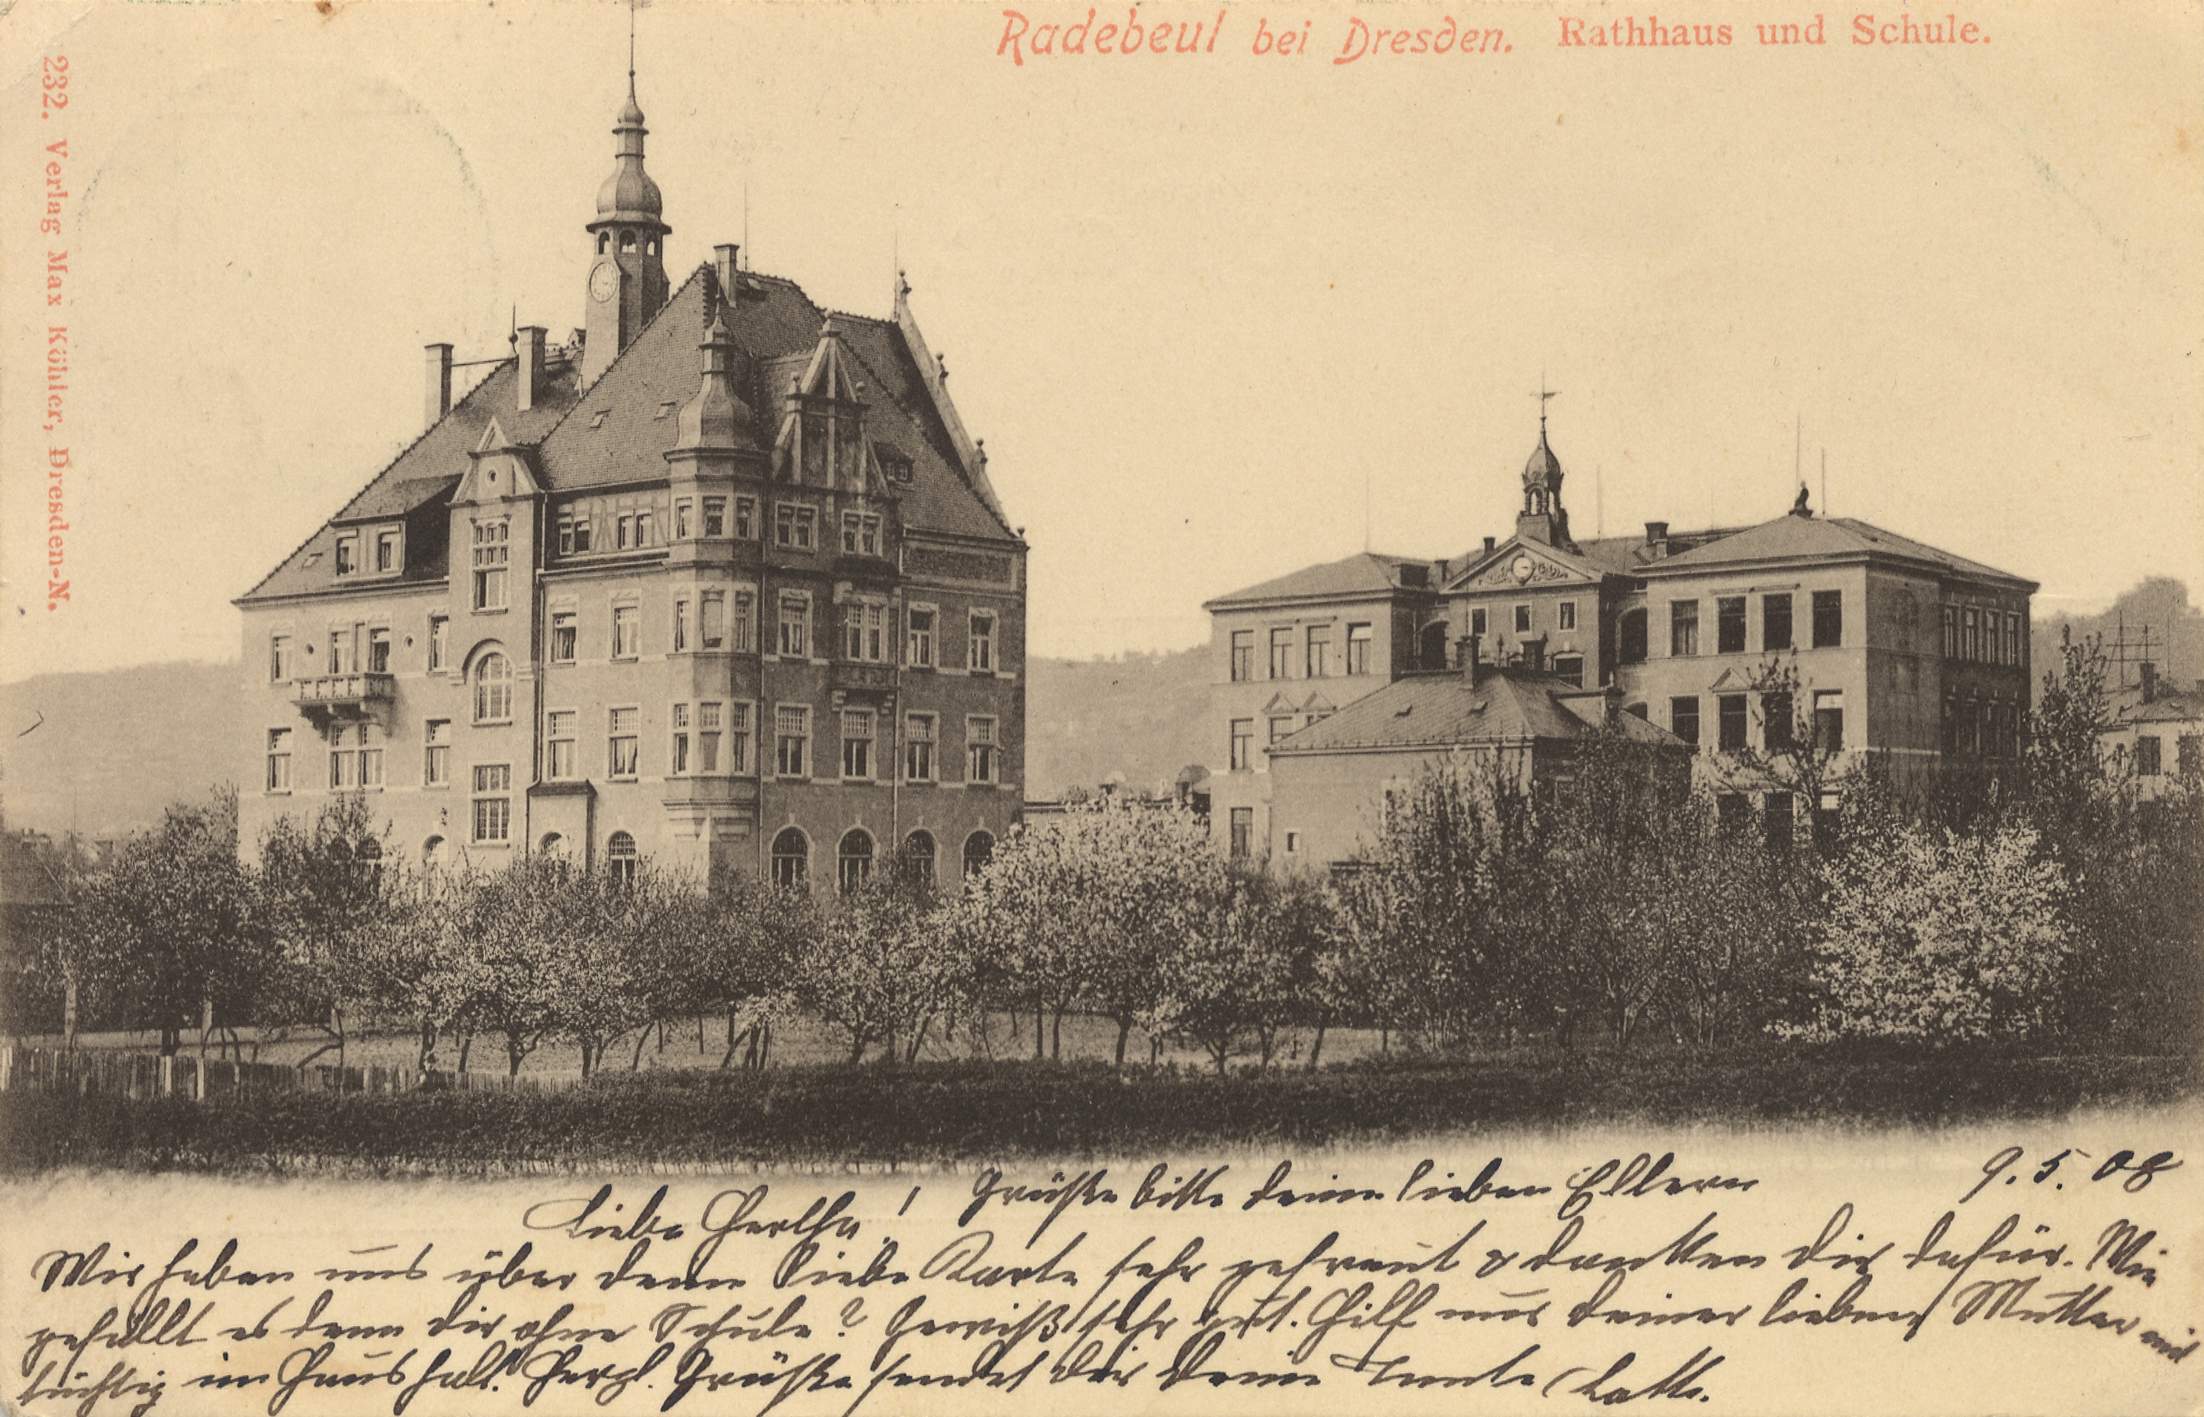 Radebeul bei Dresden. Rathhaus und Schule.
232. Verlag Max Köhler, Dresden-N.
Grüße bitte deine lieben Eltern
9. 5. 08
Liebe Hertha!
Wir haben uns über deine liebe Karte sehr gefreut & danken dir dafür. Wie
gefällt es denn dir ohne Schule? Gewiß sehr gut. Hilf nur deiner lieben Mutter
tüchtig im Haushalt. Herzl. Grüße sendet dir deine Tante